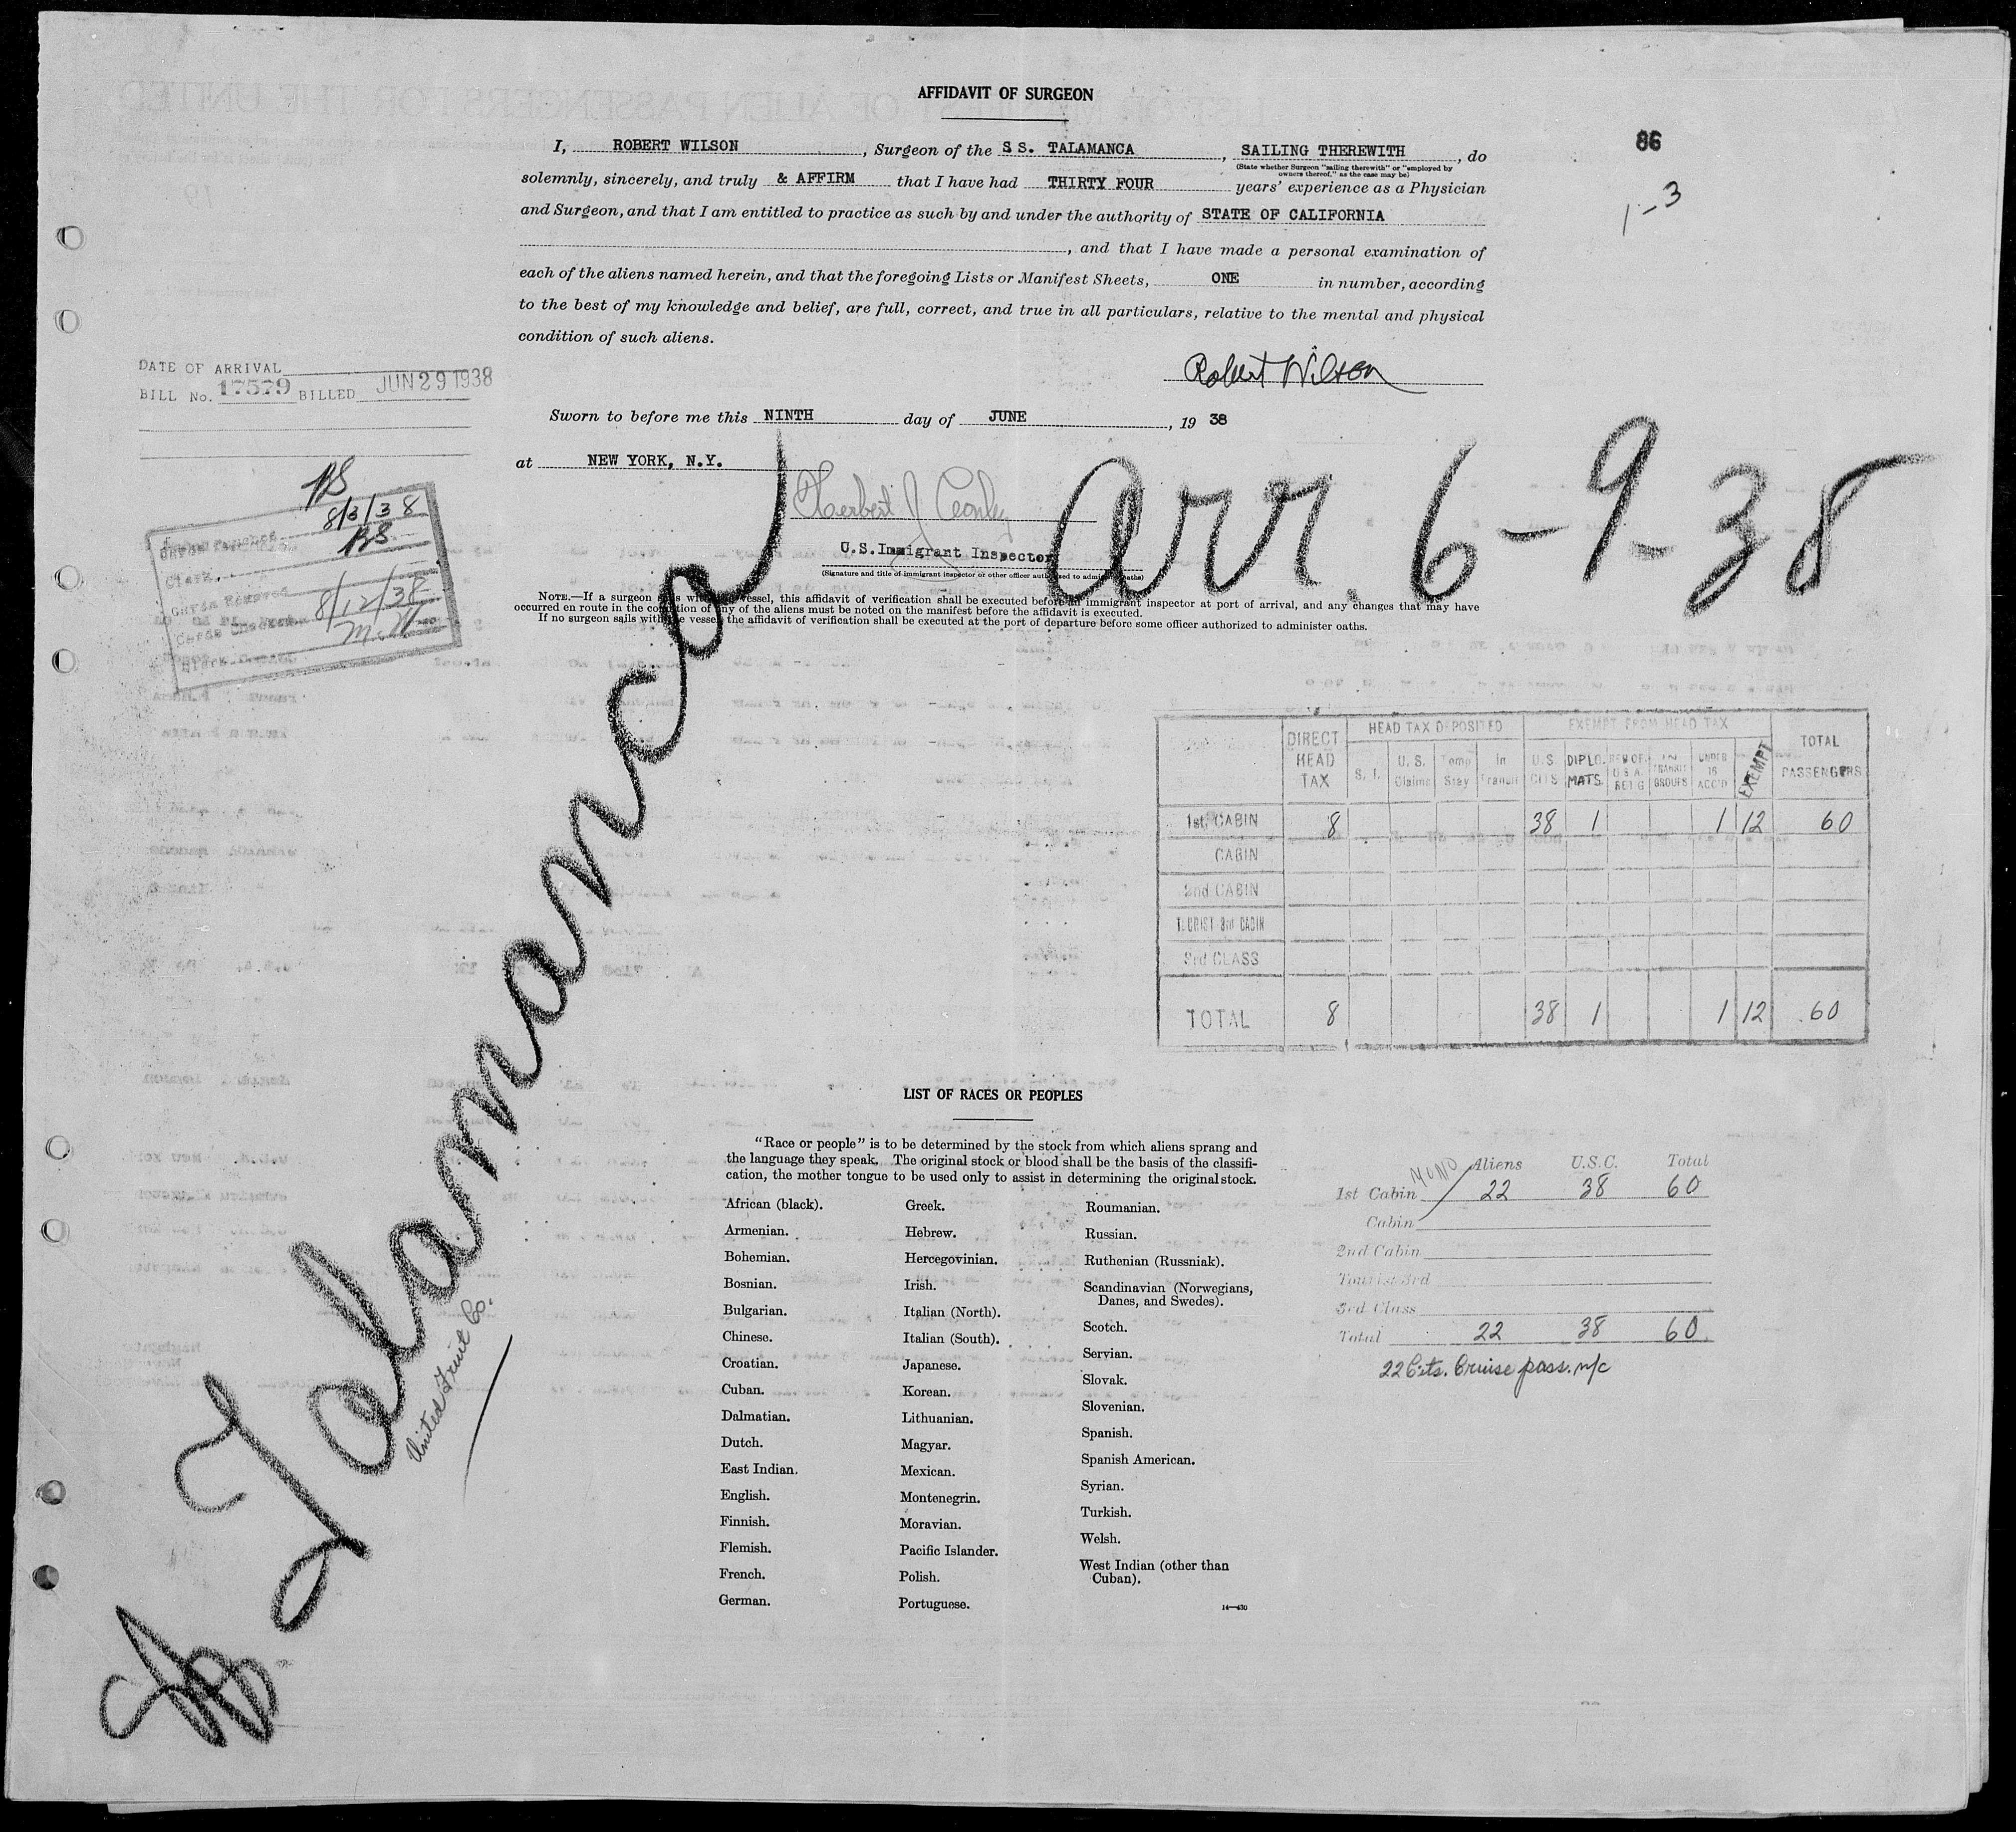 AFFIDAVIT OF SURGEON
86
1-3
I, ROBERT WILSON, Surgeon of the SS. TALAMANCA, SAILING THEREWITH, do
(State whether Surgeon "sailing therewith" or "employed by
owners thereof," as the case may be)
solemnly, sincerely, and truly & AFFIRM that I have had THIRTY FOUR years' experience as a Physician
and Surgeon, and that I am entitled to practice as such by and under the authority of STATE OF CALIFORNIA
, and that I have made a personal examination of
each of the aliens named herein, and that the foregoing Lists or Manifest Sheets, ONE in number, according
to the best of my knowledge and belief, are full, correct, and true in all particulars, relative to the mental and physical
condition of such aliens.
Robert Wilson
DATE OF ARRIVAL
BILL No. 17579 BILLED JUN 29 1938
Sworn to before me this NINTH day of JUNE, 19 38
at NEW YORK, N.Y.
Herbert J
U.S. Immigrant Inspector
(Signature and title of immigrant inspector or other officer authorized to administer oaths)
Arr. 6-9-38
NOTE.—If a surgeon sails with the vessel, this affidavit of verification shall be executed before an immigrant inspector at port of arrival, and any changes that may have
occurred en route in the condition of any of the aliens must be noted on the manifest before the affidavit is executed.
If no surgeon sails with the vessel, the affidavit of verification shall be executed at the port of departure before some officer authorized to administer oaths.
BS
8/3/38
BS
Clerk
Cards Removed
8/12/38
Cards Checked
Clerk
SS Talamanca
United Fruit Co.
DIRECT HEAD TAX | HEAD TAX DEPOSITED | EXEMPT FROM HEAD TAX | TOTAL PASSENGERS
S. I. | U. S. Claims | Temp Stay | In Transit | U.S. CITS | DIPLO. MATS. | TRANSIT GROUPS | UNDER 16 ACC'D | EXEMPT
1st. CABIN 8 38 1 1 12 60
CABIN
2nd CABIN
TOURIST 3rd CABIN
3rd CLASS
TOTAL 8 38 1 1 12 60
LIST OF RACES OR PEOPLES
"Race or people" is to be determined by the stock from which aliens sprang and
the language they speak. The original stock or blood shall be the basis of the classifi-
cation, the mother tongue to be used only to assist in determining the original stock.
African (black).
Armenian.
Bohemian.
Bosnian.
Bulgarian.
Chinese.
Croatian.
Cuban.
Dalmatian.
Dutch.
East Indian.
English.
Finnish.
Flemish.
French.
German.
Greek.
Hebrew.
Hercegovinian.
Irish.
Italian (North).
Italian (South).
Japanese.
Korean.
Lithuanian.
Magyar.
Mexican.
Montenegrin.
Moravian.
Pacific Islander.
Polish.
Portuguese.
Roumanian.
Russian.
Ruthenian (Russniak).
Scandinavian (Norwegians,
Danes, and Swedes).
Scotch.
Servian.
Slovak.
Slovenian.
Spanish.
Spanish American.
Syrian.
Turkish.
Welsh.
West Indian (other than
Cuban).
14—430
Aliens U.S.C. Total
1st Cabin 22 38 60
Cabin
2nd Cabin
Tourist 3rd
3rd Class
Total 22 38 60
22 Cits. Cruise pass. n/c